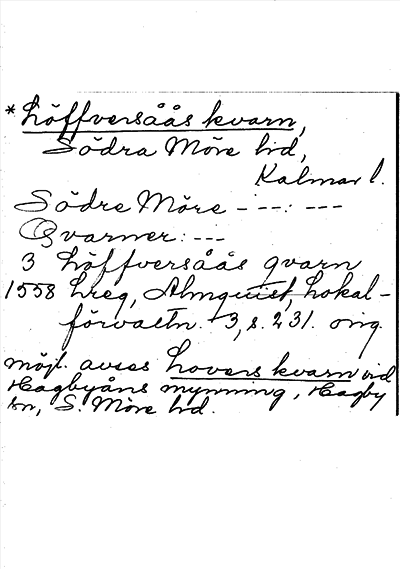 * Löffversåås kvarn,
Södra Möre hd,
Kalmar l.
Södre Möre - --: ---
Qvarner: ---
3 Löffversåås qvarn
1558 Lreg, Almquist, Lokal-
förvaltn. 3, s. 231. orig.
möjl. avses Lovers kvarn vid
Hagbyåns mynning, Hagby
sn, S. Möre hd.